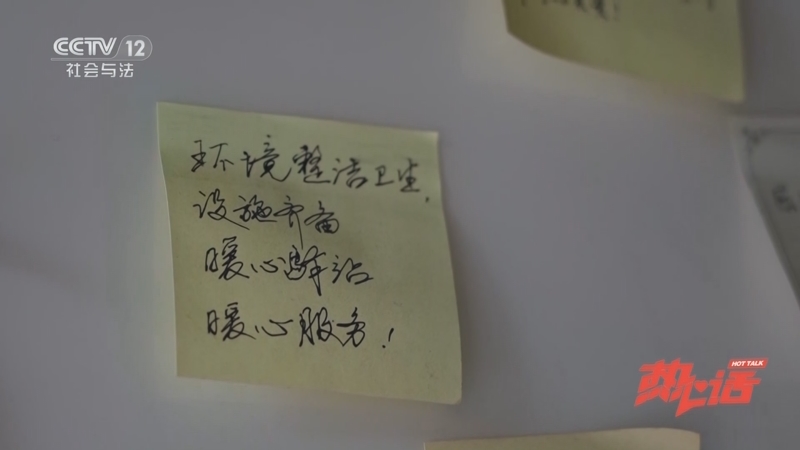 CCTV 12
社会与法
环境整洁卫生,
设施齐备
暖心驿站
暖心服务!
HOT TALK
热心话